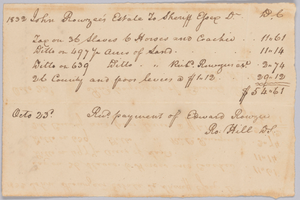 1832 John Rouzee's Estate To Sheriff Essex Dr. D. C
Tax on 36 Slaves 6 Horses and Coachee 11=61
Ditto on 497 Acres of Land. 11=14
Ditto on 639 Ditto " Rich'd. Rouzees est. 2=74
26 County and poor levies @ $1.12 29=12
$54=61
Octo 23d. Recd payment of Edward Rouzee
Ro. Hill. D.S.